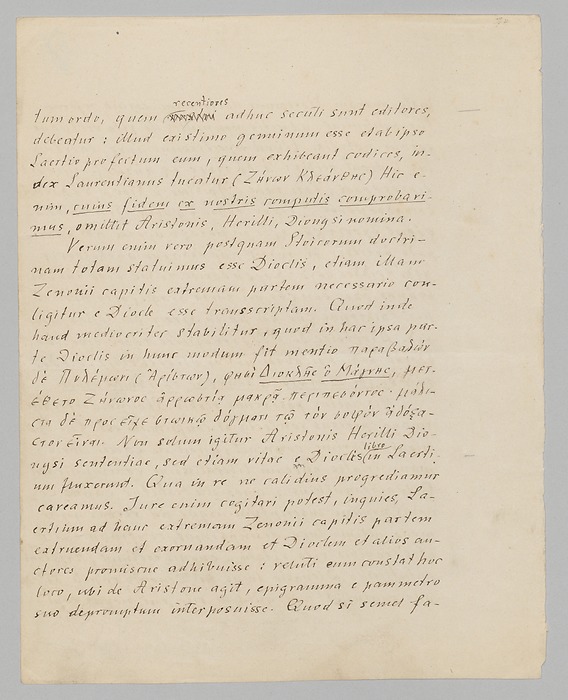 recentiores
tum ordo, quem adhuc seculi sunt editores,
debeatur: illud existimo genuinum esse et ab ipso
Laertio profectum eum, quem exhibeant codices, in-
dex Laurentianus tueatur (Ζήνων Κλεάνθης) Hic e-
nim, cuius fidem ex nostris computis comprobari-
mus, omittit Aristonis, Herilli, Dionysi nomina.
Verum enim vero postquam Stoicorum doctri-
nam totam statuimus esse Dioclis, etiam illam
Zenonii capitis extremam partem necessario con-
ligitur e Diocle esse transscriptam. Quod inde
haud mediocriter stabilitur, quod in hac ipsa par-
te Dioclis in hunc modum fit mentio παραβαλὼν
δὲ Πολέμωνι (Ἀρίστων), φησὶ Διοκλῆς ὁ Μάγνης, μετ-
έθετο Ζήνωνος ἀρρωστίᾳ μακρᾷ περιπεσόντος· μάλι-
στα δὲ προσεῖχε στωικῷ δόγματι τῷ τὸν σοφὸν ἀδόξα-
στον εἶναι. Non solum igitur Aristonis Herilli Dio-
libro
nysi sententiae, sed etiam vitae e Dioclis in Laerti-
um fluxerunt. Qua in re ne calidius progrediamur
careamus. Jure enim cogitari potest, inquies, La-
ertium ad hanc extremam Zenonii capitis partem
extruendam et exornandam et Dioclem et alios au-
ctores promiscue adhibuisse: veluti eum constat hoc
loco, ubi de Aristone agit, epigramma e pammetro
suo depromptum interposuisse. Quod si semel fa-